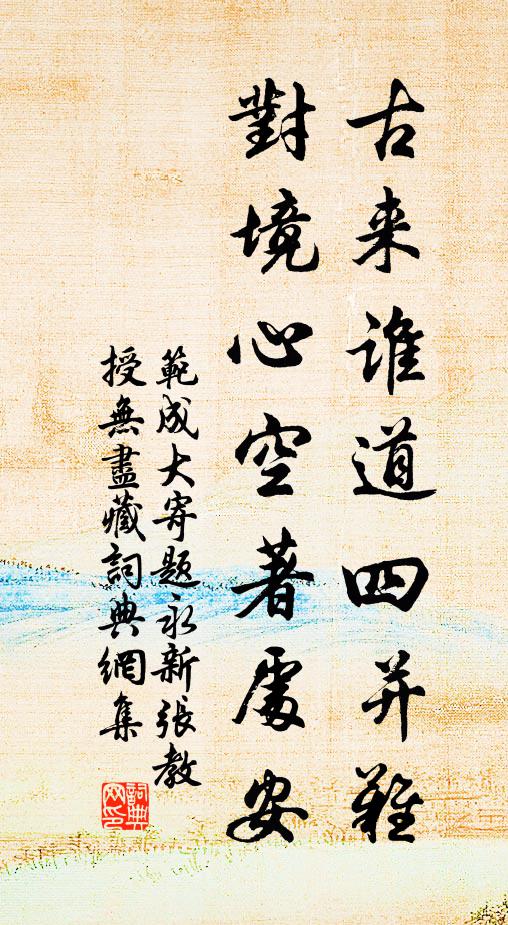 古来谁道四并難
對境心空著處安
範成大寄題永新張教
授無盡藏詞典網集
詞典
网印